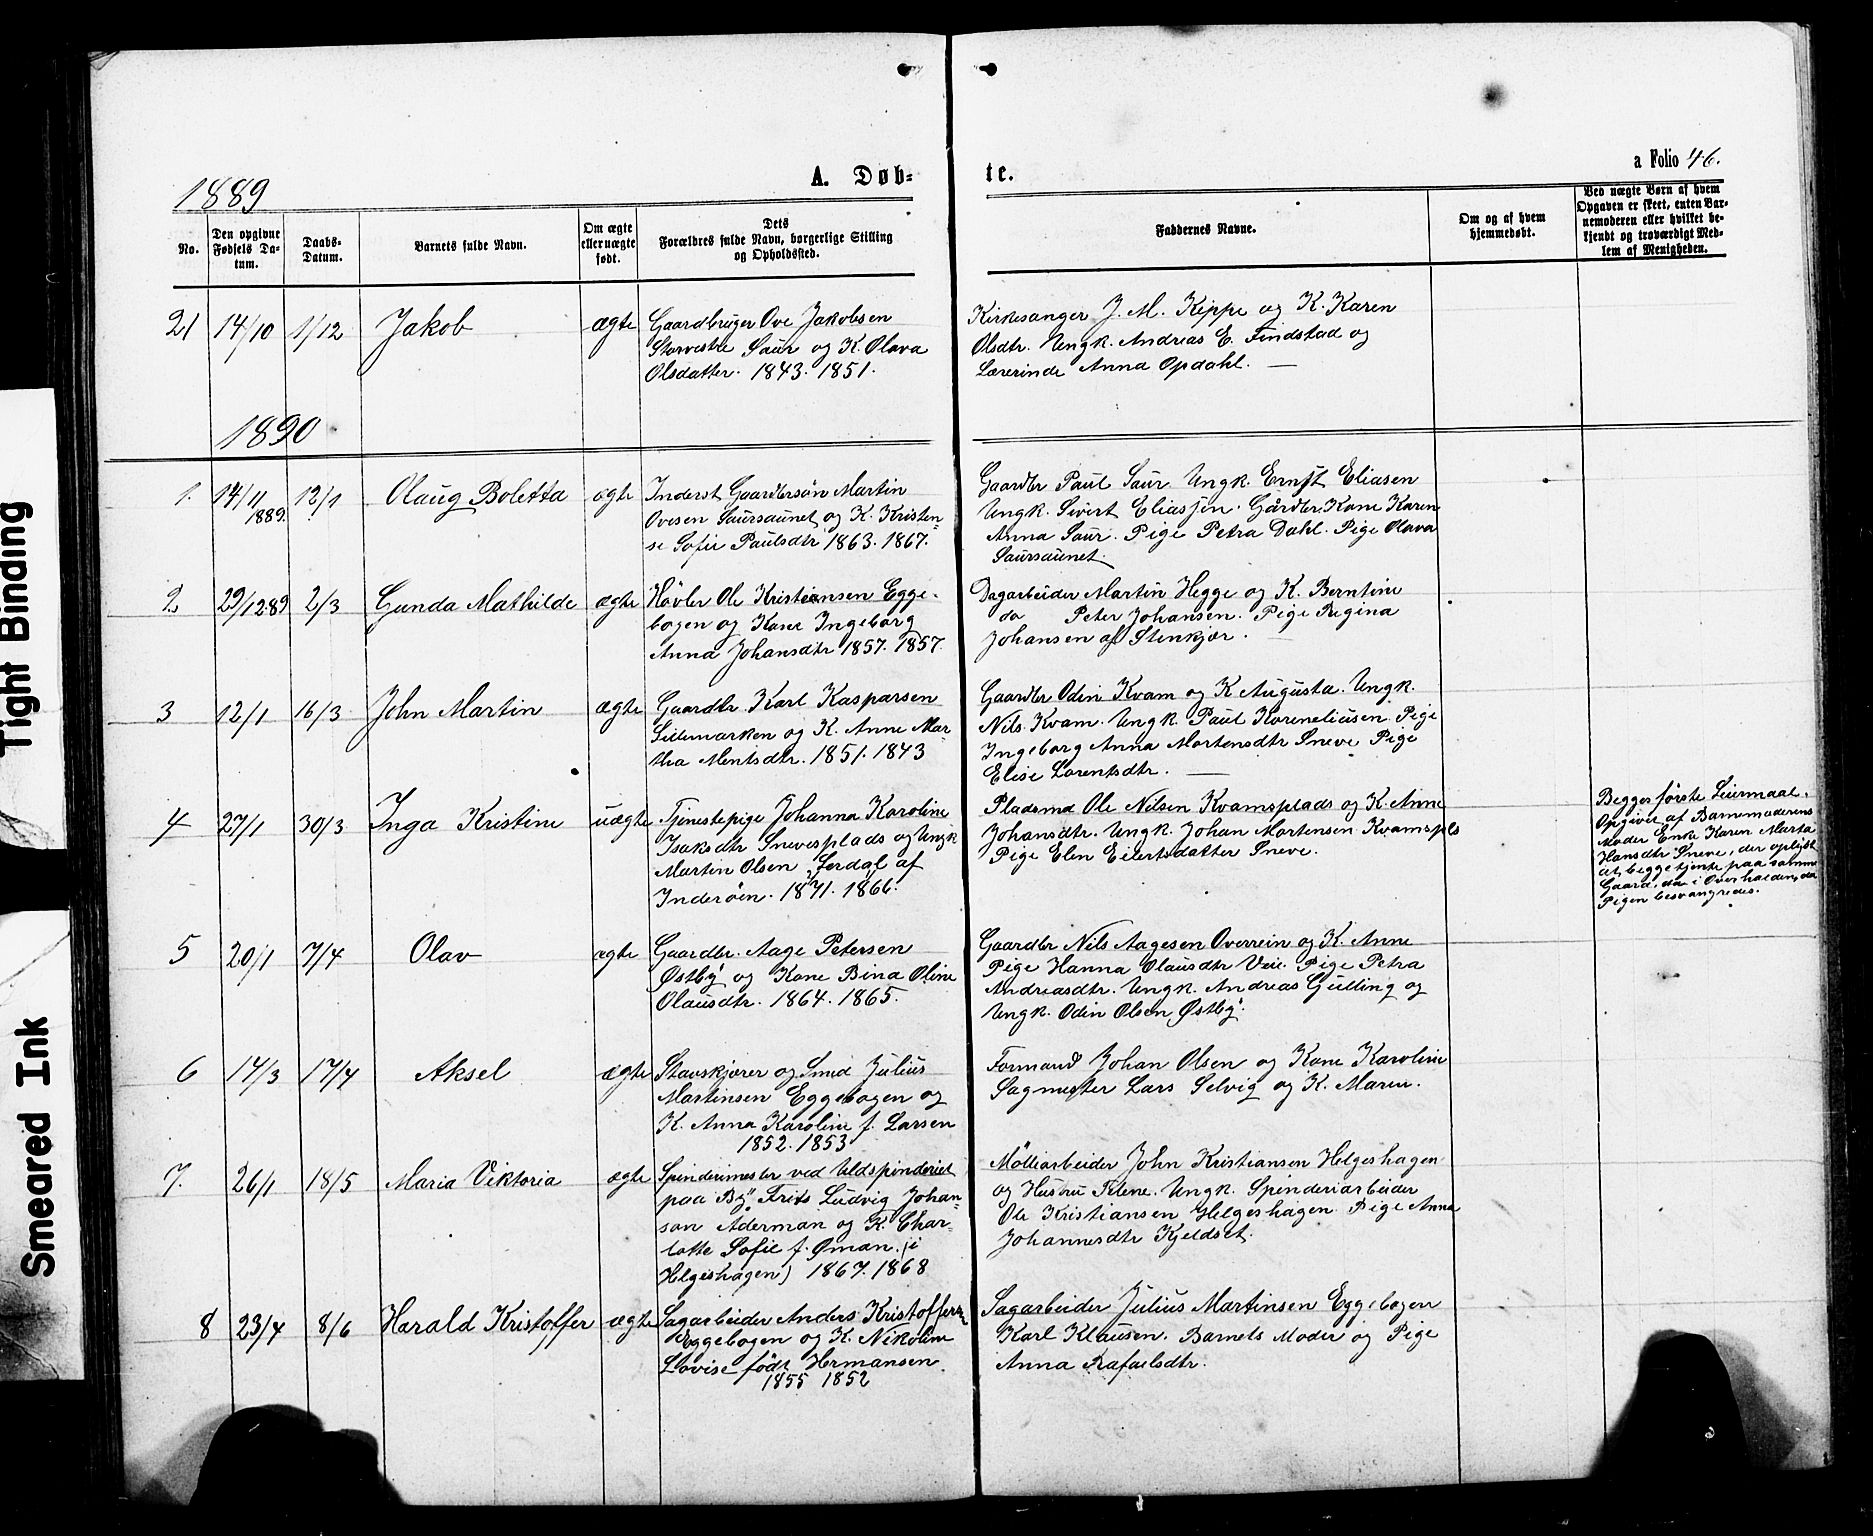 Tight Binding
Smeared Ink
1889
A. Døb-
te.
a Folio 46.
No.
Den opgivne
Fødsels Da-
tum.
Daabs-
Datum.
Barnets fulde Navn.
Om ægte
eller uægte
født.
Dets
Forældres fulde Navn, borgerlige Stilling
og Opholdssted.
Faddernes Navne.
Om og af hvem
hjemmedøbt.
Ved uægte Børn af hvem
Opgaven er skeet, enten Bar-
nemoderen eller hvilket be-
kjendt og troværdigt Med-
lem af Menigheden.
21 14/10 1/12 Jakob ægte
Gaardbruger Ove Jakobsen
Storvestre Saur og K. Olava
Olsdatter. 1843. 1851.
Kirkesanger J. M. Kippe og K. Karen
Olsdtr. Ungk. Andreas E. Findstad og
Lærerinde Anna Opdahl. —
1890
1. 14/11 1889. 12/1 Olaug Boletta ægte
Inderst Gaardbrsøn Martin
Ovesen Saursaunet og K. Kristen-
se Sofie Paulsdtr 1863. 1867.
Gaardbr Paul Saur Ungk. Ernst Eliasen
Ungk. Sivert Eliassen. Gårdbr. Kone Karen
Anna Saur. Pige Petra Dahl. Pige Olava
Saursaunet.
2 29/12 89 2/3 Gunda Mathilde ægte
Høvler Ole Kristiansen Egge-
bogen og Kone Ingeborg
Anna Johansdtr 1857. 1857.
Dagarbeider Martin Hegge og K. Berntine
do Peter Johansen. Pige Regina
Johansen af Stenkjær. —
3 12/1 16/3 John Martin ægte
Gaardbr. Karl Kasparsen
Lillemarken og K. Anne Mar-
tha Mentsdtr. 1851. 1843
Gaardbr Odin Kvam og K Augusta. Ungk.
Nils Kvam. Ungk. Paul Korneliusen. Pige
Ingeborg Anna Mortensdtr Sneve Pige
Elise Lorentsdtr. —
4 27/1 30/3 Inga Kristine uægte
Tjenestepige Johanna Karoline
Isaksdtr Snevesplads og Ungk
Martin Olsen "Jerdal" af
Inderøen. 1871. 1866.
Pladsmd Ole Nilsen Kvamsplads og K. Anne
Johansdtr. Ungk. Johan Mortensen Kvamspls
Pige Elen Eiertsdatter Sneve.
Begges første Leiermaal.
Opgivet af Barnemoderens
Moder Enke Karen Marta
Hansdtr Sneve, der oplyst
at begge tjente paa samme
Gaard, da i Overhalden, da
Pigen besvangredes.
5 20/1 7/4 Olav ægte
Gaardbr. Aage Petersen
Østby og Kone Bina Oline
Olausdtr. 1864. 1865.
Gaardbr Nils Aagesen Overrein og K. Anne
Pige Hanna Olausdtr Veie. Pige Petra
Andreasdtr. Ungk. Andreas Gulling og
Ungk. Odin Olsen Østby.
6 17/3 17/4 Aksel ægte
Stavskjærer og Smed Julius
Martinsen Eggebogen og
K. Anna Karoline f. Larsen
1852. 1853
Formand Johan Olsen og Kone Karoline
Sagmester Lars Selvig og K. Maren.
7. 26/1 18/5 Maria Viktoria ægte
Spinderimester ved Uldspinderiet
paa "By" Frits Ludvig Johan-
son Aderman og K. Char-
lotte Sofie f. Øman. (i
Helgeshagen) 1867. 1868
Møllearbeider John Kristiansen Helgeshagen
og Hustru Elene. Ungk. Spinderiarbeider
Ole Kristiansen Helgeshagen. Pige Anna
Johannesdtr Kjeldset.
8 23/4 8/6 Harald Kristoffer ægte
Sagarbeider Anders Kristoffersen
Eggebogen og K. Nikoline
Lovise født Hermansen.
1855 1852
Sagarbeider Julius Martinsen Eggebogen
Karl Klausen. Barnets Moder og Pige
Anna Rafaelsdtr.